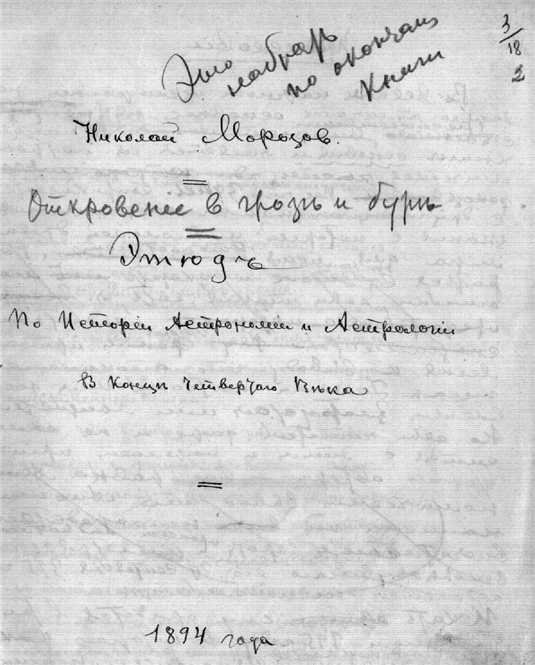 Это
набрать
по окончании
книги
3/18
2
Николай Морозов.
Откровение в грозѣ и бурѣ
Этюдъ
По Исторіи Астрономіи и Астрологіи
В Концѣ Четвертаго Вѣка
1894 года